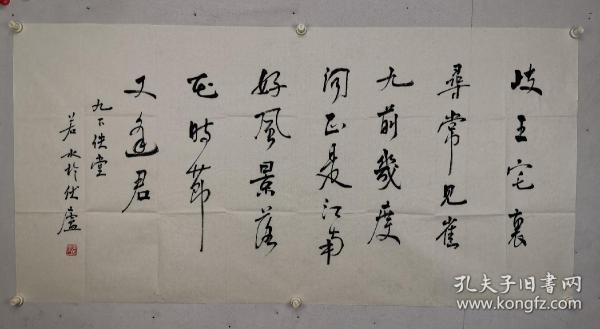 岐王宅裏
尋常見崔
九前幾度
闻正是江南
好風景落
花時節
又逢君
九下
堂
若水於
廬
孔夫子旧书网
www.kongfz.com